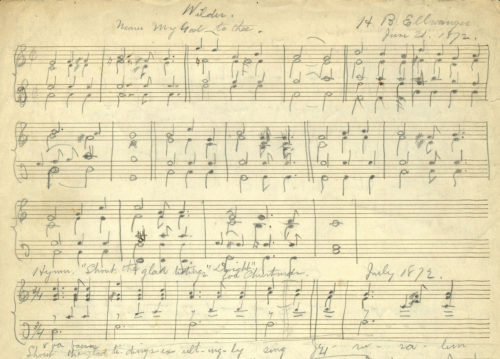 Wilder.
Nearer My God to thee.
H. B. Ellwanger
June 21. 1872.
Hymn. "Shout the glad tidings" "Dwight"
for Christmas.
July 1872.
8va
Shout the glad ti-dings ex-ult-ing-ly sing Je- ru- sa- lem